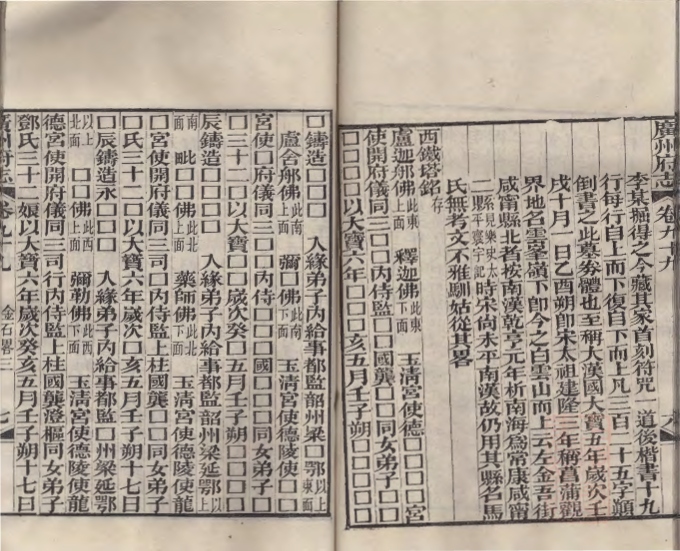 廣州府志 卷九十九
李某掘得之今藏其家首刻符咒一道後楷書十九
行每行自上而下復自下而上凡三百二十五字顛
倒書之此墓券體也至稱大漢國大寶五年歲次壬
戌十月一日乙酉朔卽宋太祖建隆三年稱菖蒲觀
界地名雲峯嶺下卽今之白雲山而上云左金吾街
咸甯縣北者按南漢乾亨元年析南海爲常康咸甯
二縣見樂史太平寰宇記時宋尚未平南漢故仍用其縣名馬
氏無考文不雅馴姑從其畧
西鐵塔銘存
盧迦郍佛此東上面 釋迦佛此東下面 玉清宮使德陵使□□宮
使開府儀同三□□內侍□□□國龔□□同女弟子□
□□□□以大寶六年□□□亥五月壬子朔□□□□
□鑄造□□□□ 入緣弟子內給事都監韶州梁□鄂以上東面
盧舍郍佛此南上面 彌□佛此南下面 玉清宮使德陵□□□
宮使□府儀同三□□□內侍□□□□龔□□□女弟子□
□三十二□□以大寶□□歲次癸□五月壬子朔□□□□
辰鑄造□□□□ 入緣弟子內給事都監韶州梁延鄂以上
南面 毗□□佛此北上面 藥師佛此北下面 玉清宮使德陵使龍
□宮使開府儀同三□□內侍監上柱國龔□□同女弟子
□氏三十二□以大寶六年歲次□亥五月壬子朔十七日
□辰鑄造永□□□ 入緣弟子內給事都監□州梁延鄂
以上北面 □□佛此西上面 彌勒佛此西下面 玉清宮使德陵使龍
德宮使開府儀同三司行內侍監上柱國龔澄樞同女弟子
鄧氏三十二娘以大寶六年歲次癸亥五月壬子朔十七日
廣州府志 卷九十九 金石畧三 七